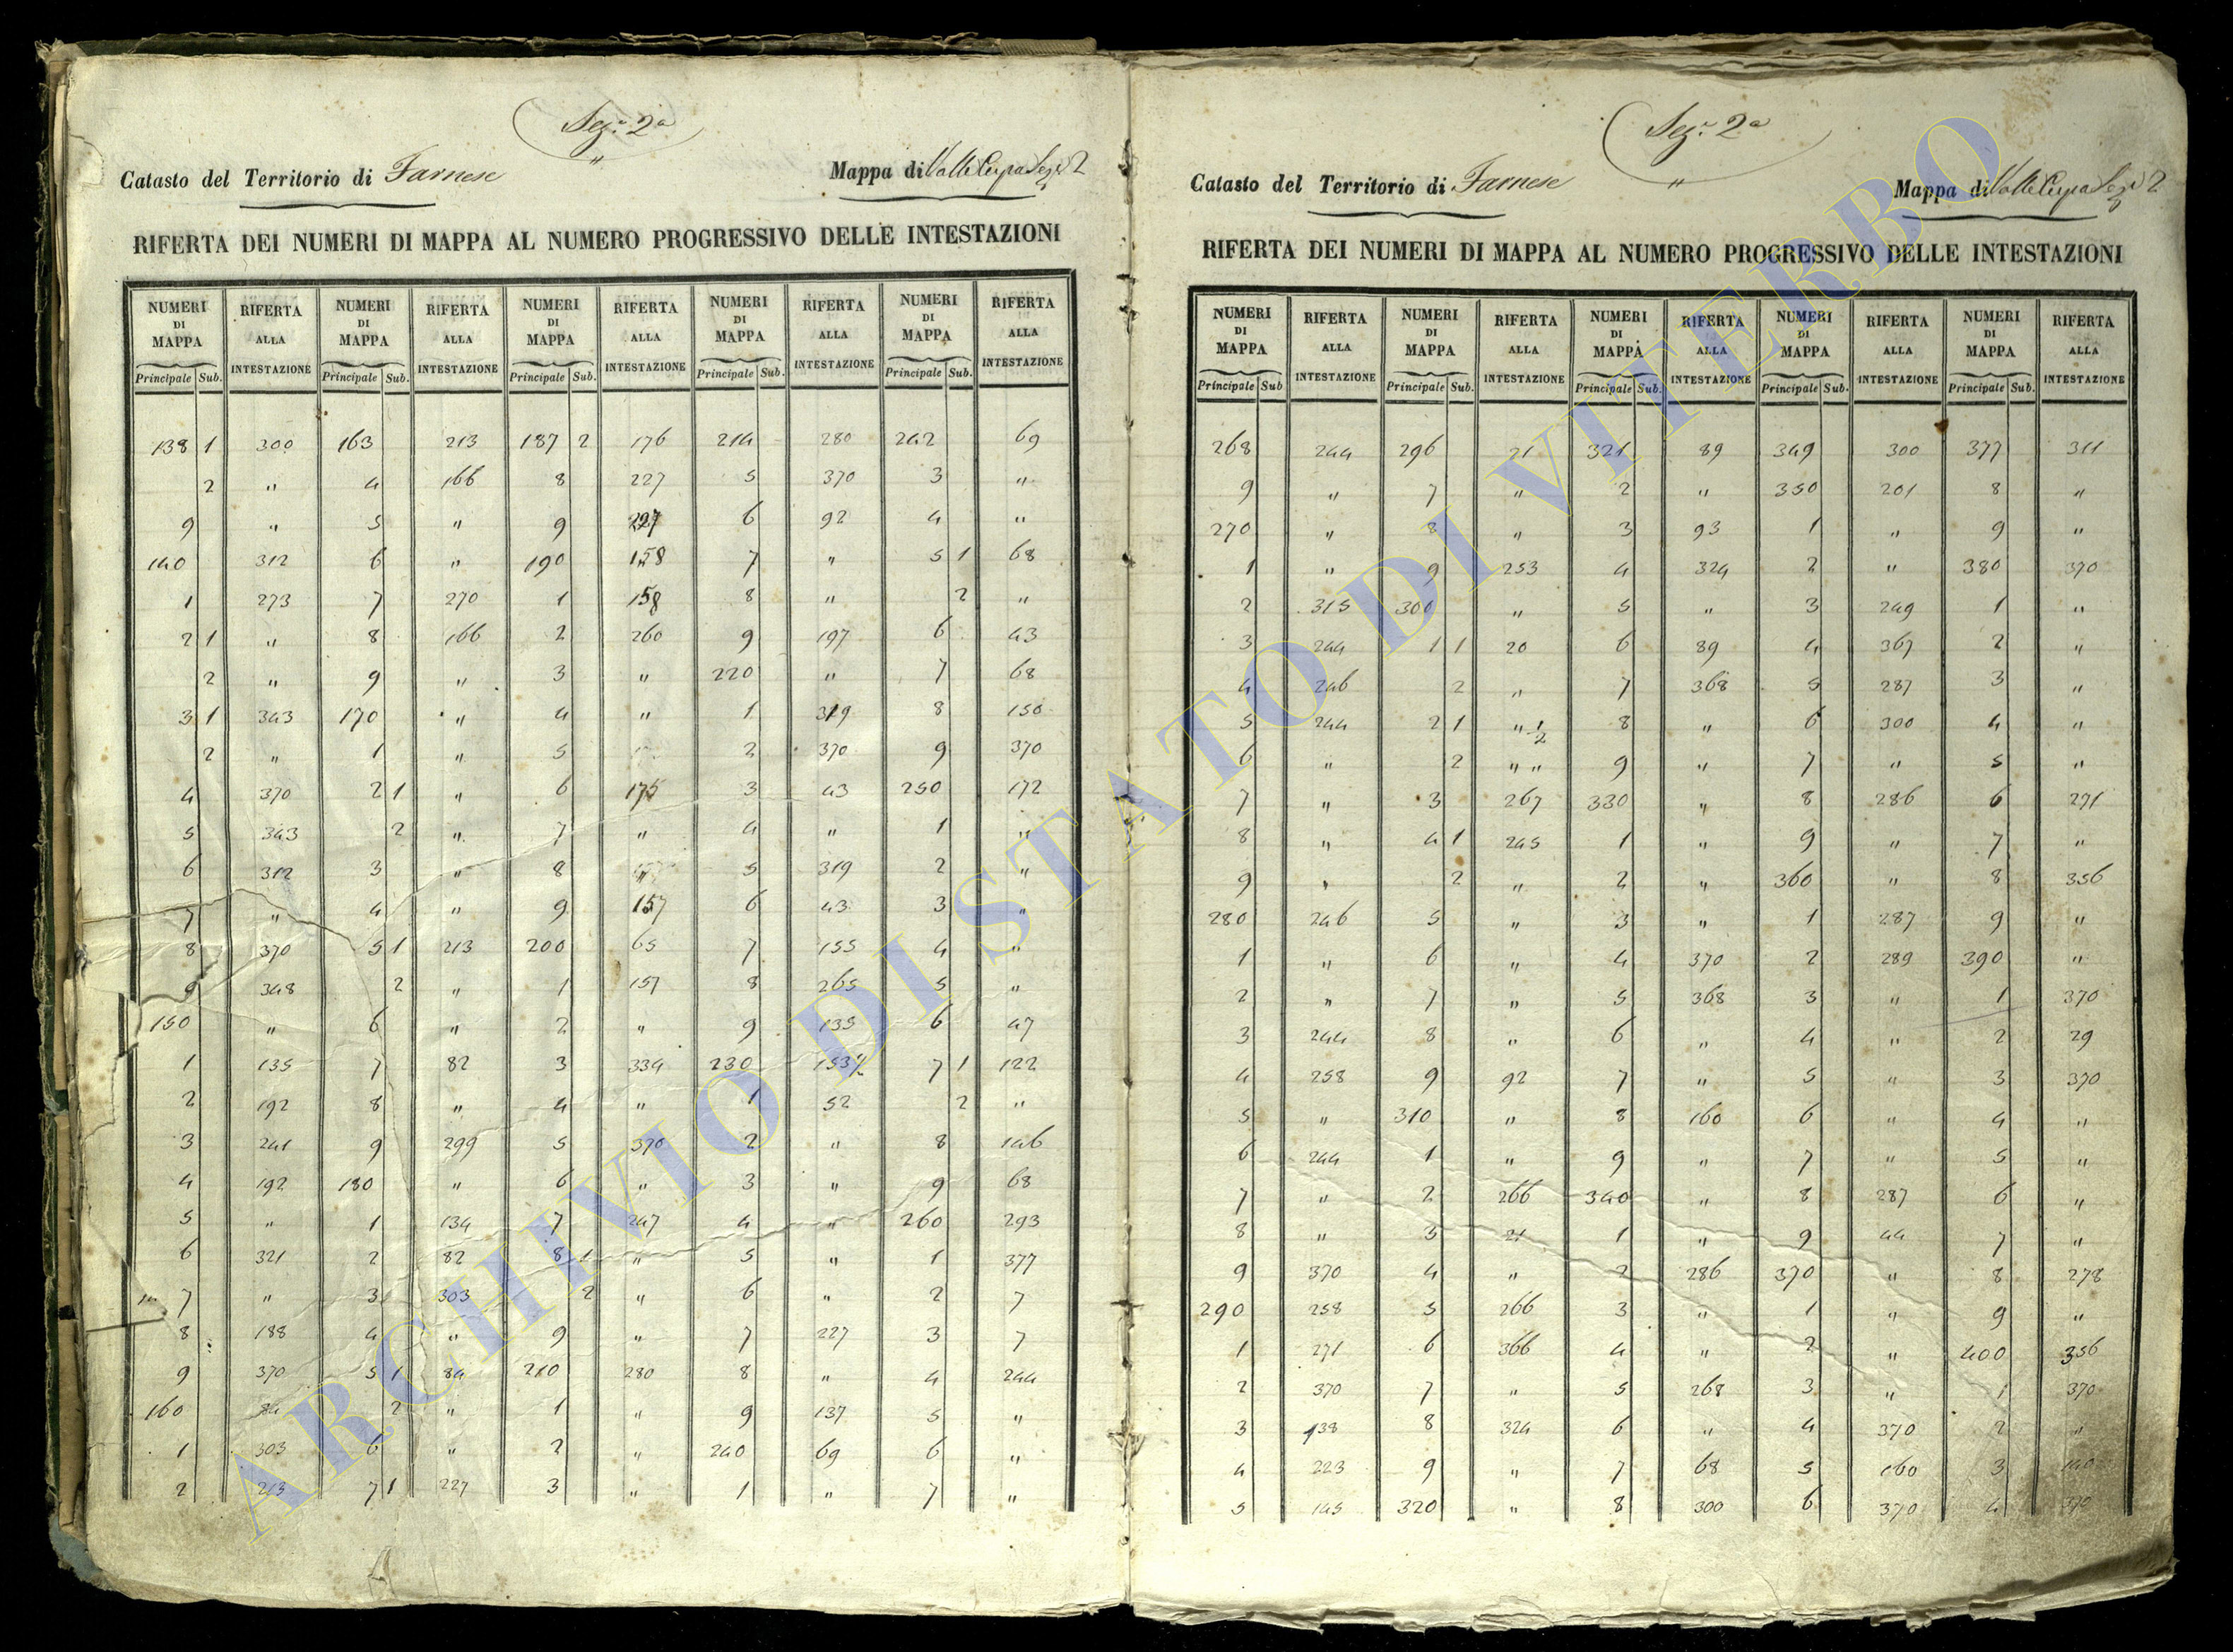 Sez. 2a
Catasto del Territorio di Farnese Mappa di Valle Cupa Sez. 2
RIFERTA DEI NUMERI DI MAPPA AL NUMERO PROGRESSIVO DELLE INTESTAZIONI
NUMERI DI MAPPA RIFERTA ALLA INTESTAZIONE NUMERI DI MAPPA RIFERTA ALLA INTESTAZIONE NUMERI DI MAPPA RIFERTA ALLA INTESTAZIONE NUMERI DI MAPPA RIFERTA ALLA INTESTAZIONE NUMERI DI MAPPA RIFERTA ALLA INTESTAZIONE
Principale Sub. Principale Sub. Principale Sub. Principale Sub. Principale Sub.
138 1 300 163 213 187 2 176 214 280 242 69
2 " 4 166 8 227 5 370 3 "
9 " 5 " 9 227 6 92 4 "
140 312 6 " 190 158 7 " 5 1 68
1 273 7 270 1 158 8 " 2 "
2 1 " 8 166 2 260 9 197 6 43
2 " 9 " 3 " 220 " 7 68
3 1 343 170 " 4 " 1 319 8 150
2 " 1 " 5 2 370 9 370
4 370 2 1 " 6 175 3 43 250 172
5 343 2 " 7 " 4 " 1 "
6 312 3 " 8 5 319 2 "
7 " 4 " 9 157 6 43 3 "
8 370 5 1 213 200 65 7 155 4 "
9 348 2 " 1 157 8 265 5 "
150 " 6 " 2 " 9 135 6 47
1 135 7 82 3 334 230 153 7 1 122
2 192 8 " 4 " 1 52 2 "
3 241 9 299 5 370 2 " 8 146
4 192 180 " 6 " 3 " 9 68
5 " 1 134 7 247 4 " 260 293
6 321 2 82 8 1 " 5 " 1 377
7 " 3 303 2 " 6 " 2 7
8 188 4 " 9 " 7 227 3 7
9 370 5 1 84 210 280 8 " 4 244
160 84 2 " 1 " 9 137 5 "
1 303 6 " 2 " 240 69 6 "
2 213 7 1 227 3 " 1 " 7 "
Sez. 2a
Catasto del Territorio di Farnese Mappa di Valle Cupa Sez. 2
RIFERTA DEI NUMERI DI MAPPA AL NUMERO PROGRESSIVO DELLE INTESTAZIONI
NUMERI DI MAPPA RIFERTA ALLA INTESTAZIONE NUMERI DI MAPPA RIFERTA ALLA INTESTAZIONE NUMERI DI MAPPA RIFERTA ALLA INTESTAZIONE NUMERI DI MAPPA RIFERTA ALLA INTESTAZIONE NUMERI DI MAPPA RIFERTA ALLA INTESTAZIONE
Principale Sub Principale Sub. Principale Sub. Principale Sub. Principale Sub.
268 244 296 21 321 89 349 300 377 311
9 " 7 " 2 " 350 201 8 "
270 " 8 " 3 93 1 " 9 "
1 " 9 253 4 324 2 " 380 370
2 315 300 " 5 " 3 249 1 "
3 244 1 1 20 6 89 4 367 2 "
4 246 2 " 7 368 5 287 3 "
5 244 2 1 " 1/2 8 " 6 300 4 "
6 " 2 " " 9 " 7 " 5 "
7 " 3 267 330 " 8 286 6 271
8 " 4 1 245 1 " 9 " 7 "
9 " 2 " 2 " 360 " 8 356
280 246 5 " 3 " 1 287 9 "
1 " 6 " 4 370 2 289 390 "
2 " 7 " 5 368 3 " 1 370
3 244 8 " 6 " 4 " 2 29
4 258 9 92 7 " 5 " 3 370
5 " 310 " 8 160 6 " 4 "
6 244 1 " 9 " 7 " 5 "
7 " 2 266 340 " 8 287 6 "
8 " 3 21 1 " 9 44 7 "
9 370 4 " 2 286 370 " 8 278
290 258 5 266 3 " 1 " 9 "
1 271 6 366 4 " 2 " 400 356
2 370 7 " 5 268 3 " 1 370
3 138 8 324 6 " 4 370 2 "
4 223 9 " 7 68 5 160 3 140
5 145 320 " 8 300 6 370 4 370
ARCHIVIO DI STATO DI VITERBO